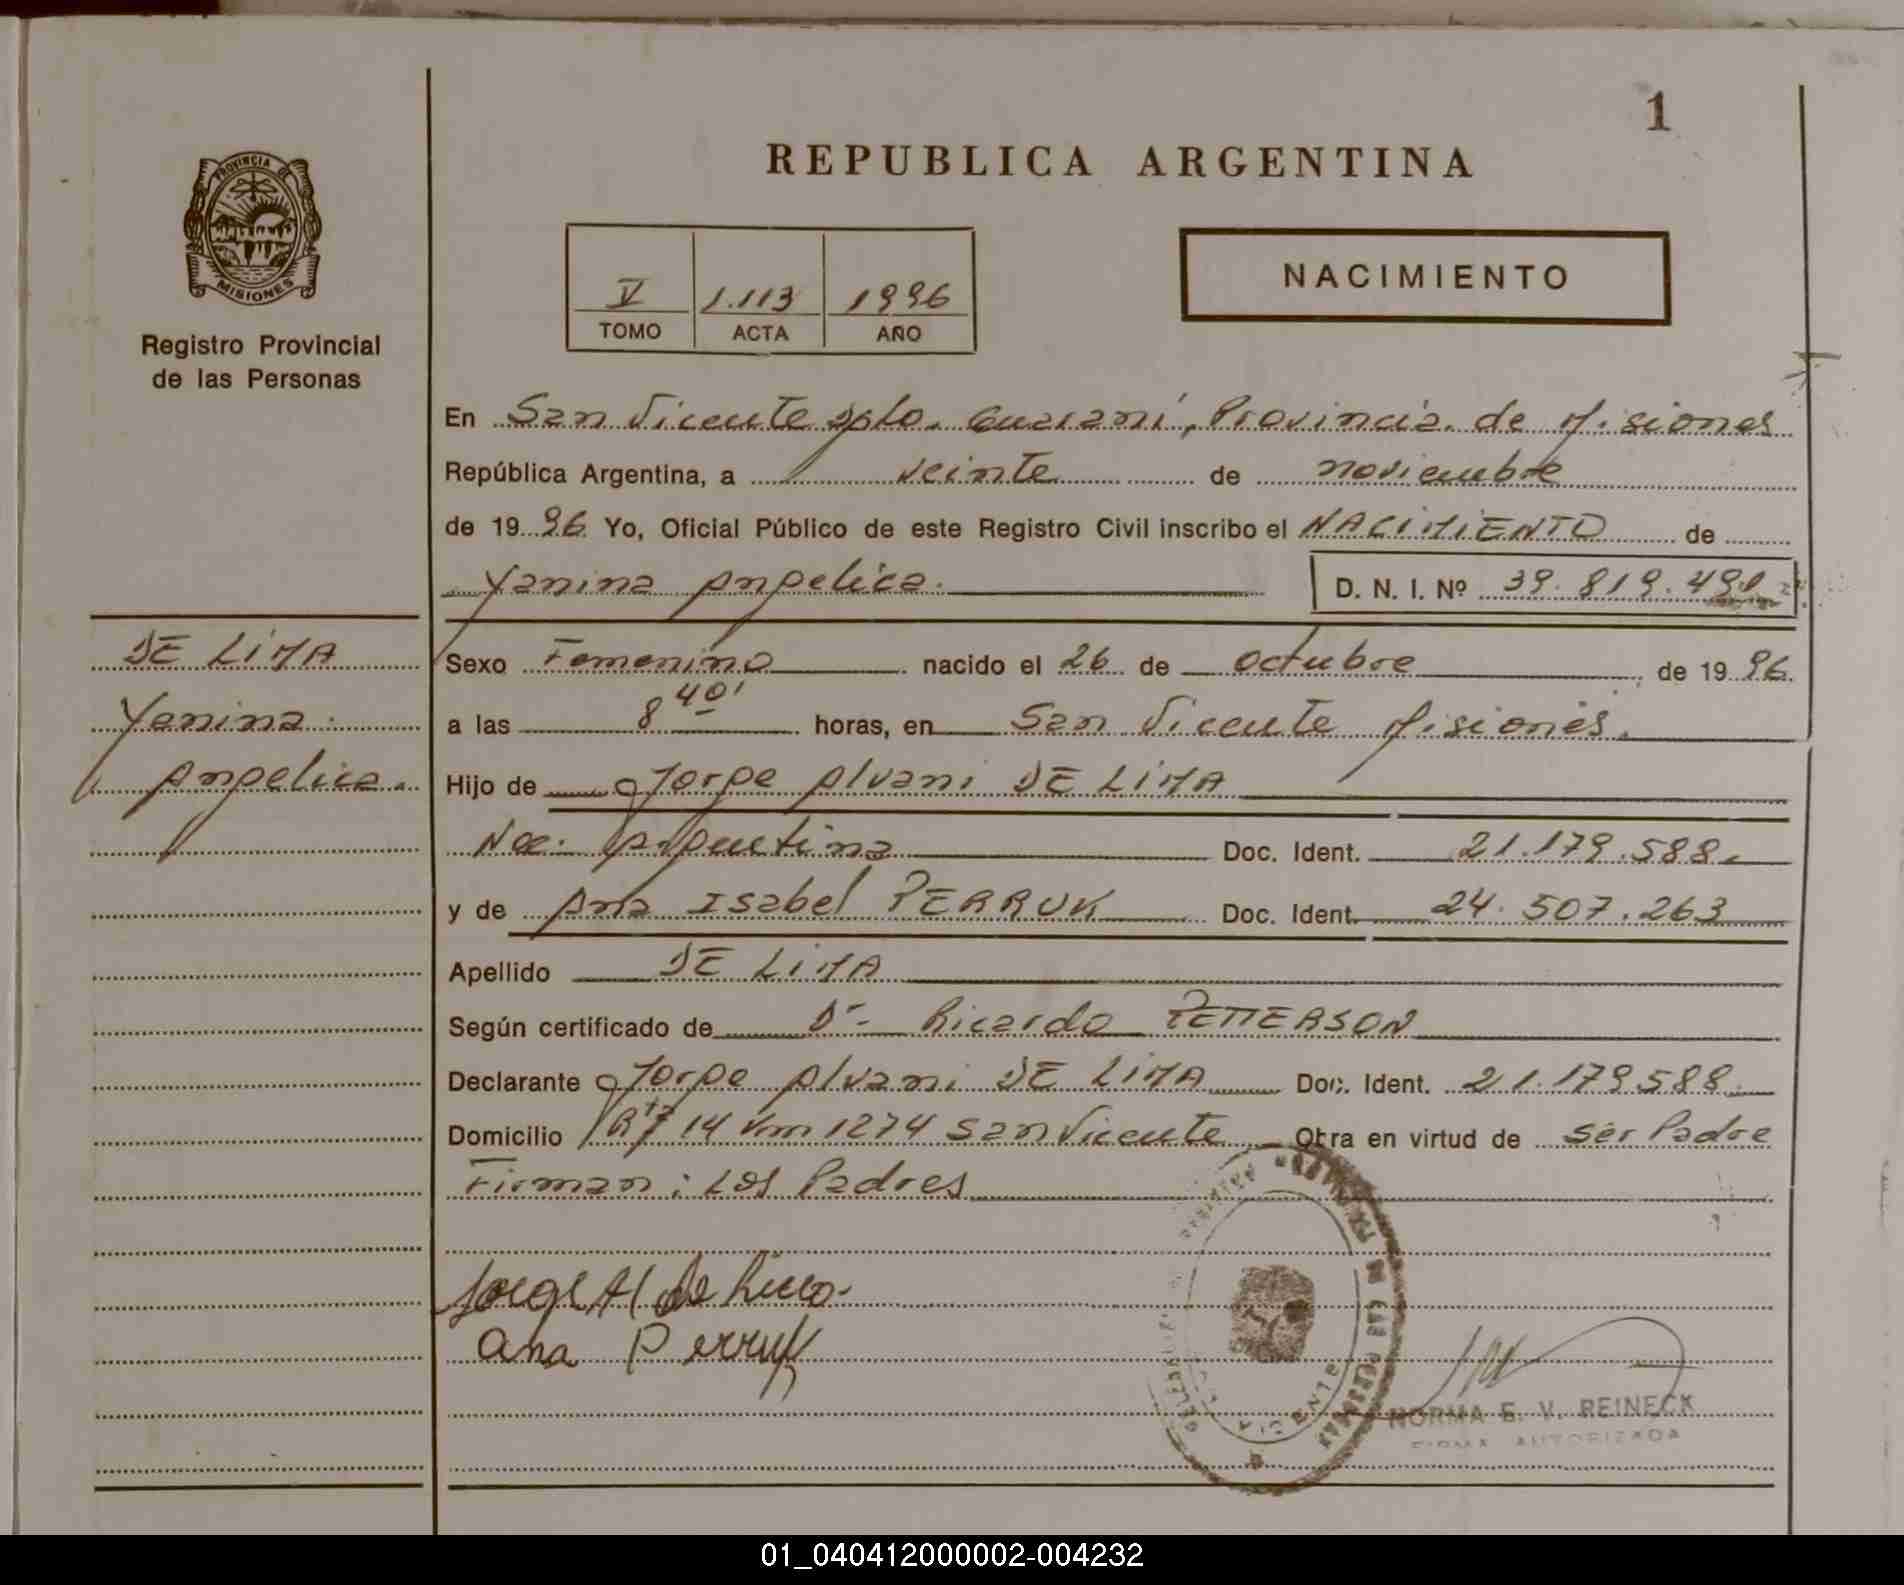 1
REPUBLICA ARGENTINA
PROVINCIA DE
MISIONES
Registro Provincial
de las Personas
V 1.113 1996
TOMO ACTA AÑO
NACIMIENTO
En San Vicente Dpto. Guaraní, Provincia de Misiones
República Argentina, a veinte de noviembre
de 1996 Yo, Oficial Público de este Registro Civil inscribo el NACIMIENTO de
Yanina Angelica. D. N. I. Nº 39.819.491
DE LIMA
Yanina
Angelica.
Sexo Femenino nacido el 26 de octubre de 1996.
a las 8 40' horas, en San Vicente Misiones.
Hijo de Jorge Alvani DE LIMA
Nac. Argentina Doc. Ident. 21.179.588.
y de Ana Isabel PERRUK Doc. Ident. 24.507.263
Apellido DE LIMA
Según certificado de Dr. Ricardo PETTERSON
Declarante Jorge Alvani DE LIMA Doc. Ident. 21.179.588.
Domicilio 14 Km 1274 San Vicente Obra en virtud de ser Padre
Firman: Los Padres
Jorge Al de Lima
Ana Perruk
DE LAS PERSONAS
NORMA E. V. REINECK
FIRMA AUTORIZADA
01_040412000002-004232